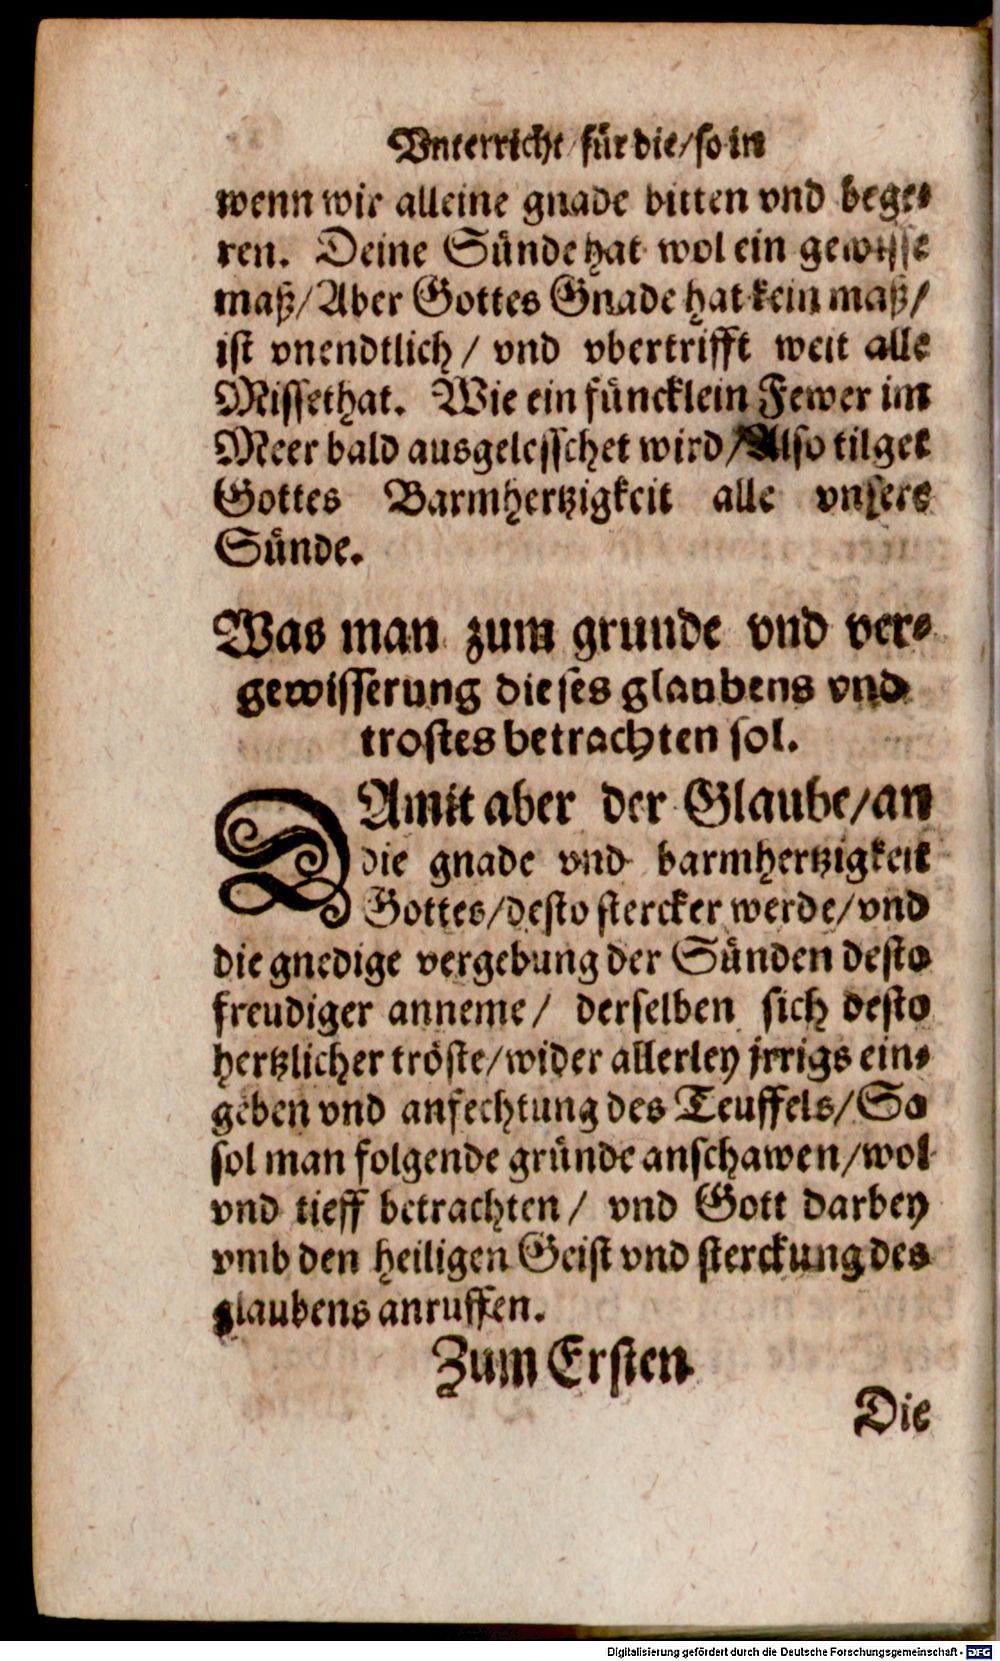 Vnterricht für die/so in
wenn wir alleine gnade bitten vnd bege-
ren. Deine Sünde hat wol ein gewisse
maß/Aber Gottes Gnade hat kein maß/
ist vnendtlich/ vnd vbertrifft weit alle
Missethat. Wie ein füncklein Fewer im
Meer bald ausgelesschet wird/Also tilget
Gottes Barmhertzigkeit alle vnsere
Sünde.
Was man zum grunde vnd ver-
gewisserung dieses glaubens vnd
trostes betrachten sol.
DAmit aber der Glaube/an
die gnade vnd barmhertzigkeit
Gottes/desto stercker werde/vnd
die gnedige vergebung der Sünden desto
freudiger anneme/ derselben sich desto
hertzlicher tröste/wider allerley jrrigs ein-
geben vnd anfechtung des Teuffels/So
sol man folgende gründe anschawen/wol
vnd tieff betrachten/ vnd Gott darbey
vmb den heiligen Geist vnd sterckung des
glaubens anruffen.
Zum Ersten
Die
Digitalisierung gefördert durch die Deutsche Forschungsgemeinschaft - DFG